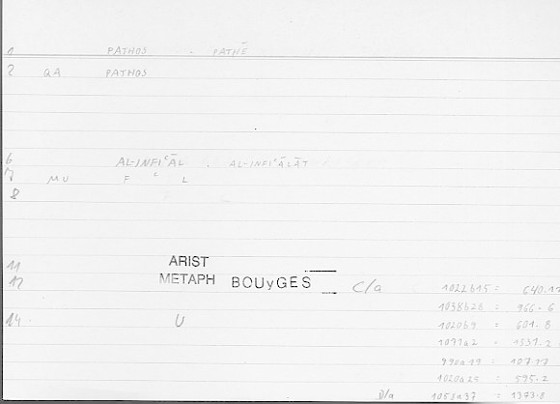 1 PATHOS . PATHĒ
2 QA PATHOS
6 AL-INFIʿĀL . AL-INFIʿĀLĀT
7 MU F ʿ L
8
11 ARIST
12 METAPH BOUyGES C/a
14 U
1022b15 = 640.12
1038b28 = 966-6
1020b9 = 601-8
1071a2 = 1531-2
990a19 = 107-17
1020a25 = 595-2
D/a 1053a37 = 1373-8